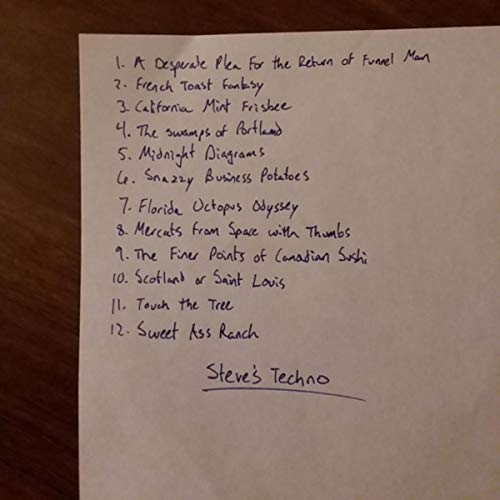 1. A Desperate Plea For the Return of Funnel Man
2. French Toast Fantasy
3. California Mint Frisbee
4. The swamps of Portland
5. Midnight Diagrams
6. Snazzy Business Potatoes
7. Florida Octopus Odyssey
8. Mercats From Space with Thumbs
9. The Finer Points of Canadian Sushi
10. Scotland or Saint Louis
11. Touch the Tree
12. Sweet Ass Ranch
Steve's Techno